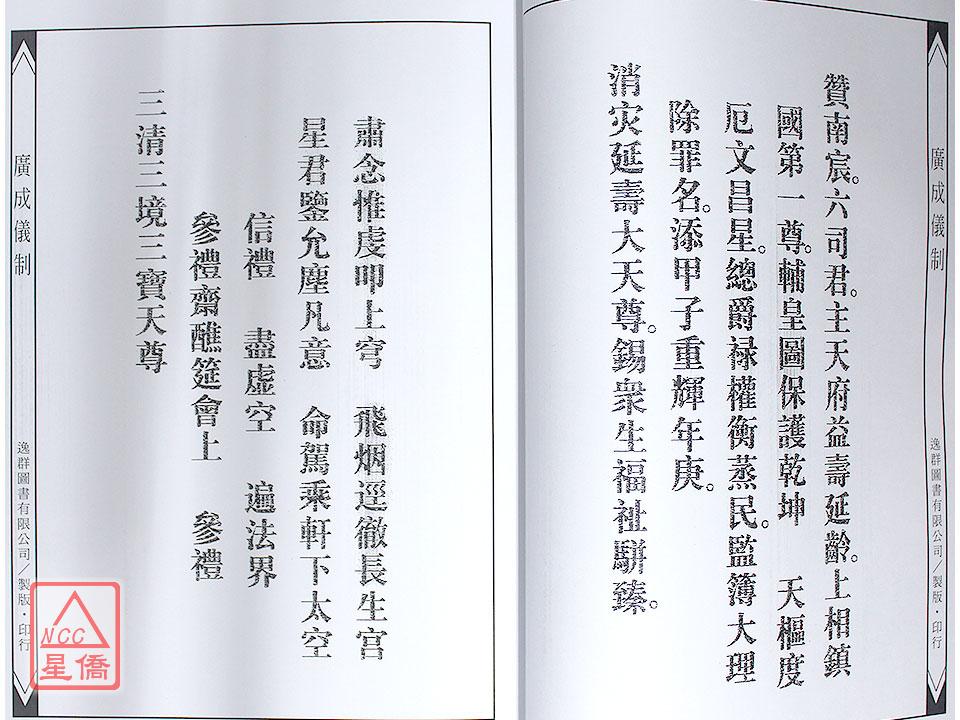 廣成儀制
逸群圖書有限公司／製版・印行
贊南宸。六司君。主天府益壽延齡。上相鎮
國第一尊。輔皇圖保護乾坤　天樞度
厄文昌星。總爵禄權衡蒸民。監簿大理
除罪名。添甲子重輝年庚。
消灾延壽大天尊。錫衆生福祉駢臻。
肅念惟虔叩上穹　飛烟逕徹長生宫
星君鑒允塵凡意　命駕乘軒下太空
信禮　盡虛空　遍法界
參禮齋醮筵會上　參禮
三清三境三寶天尊
廣成儀制
逸群圖書有限公司／製版・印行
NCC
星僑